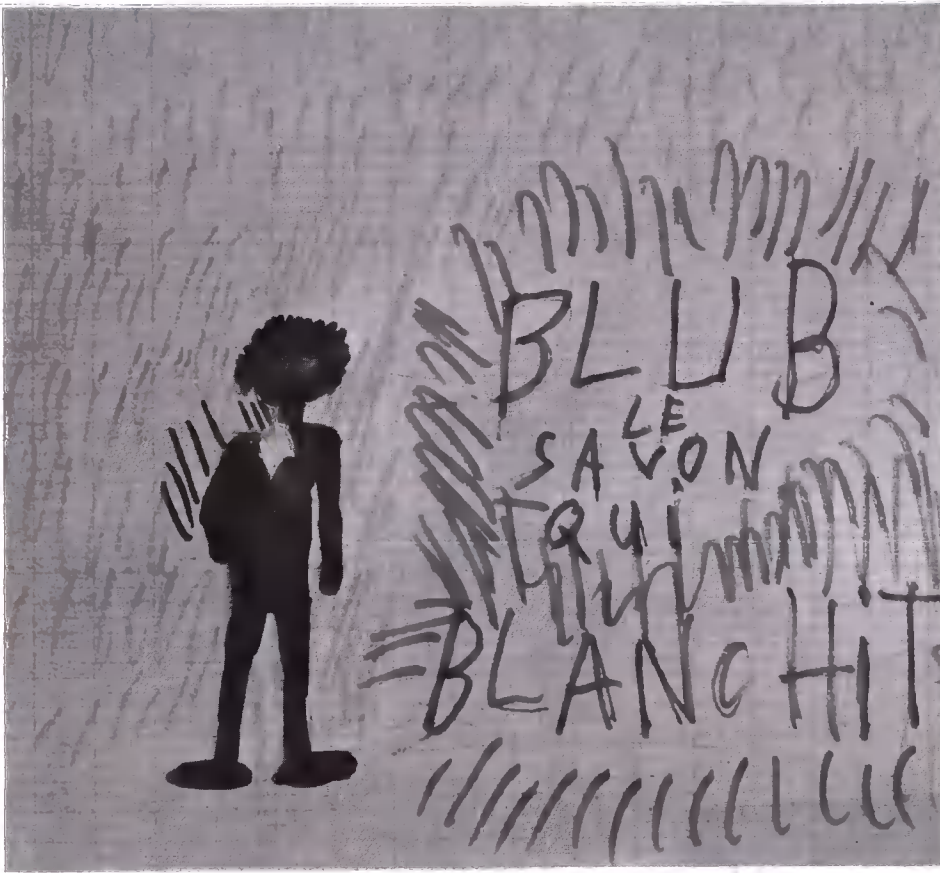 BLUB
LE
SAVON
QUI
BLANCHIT